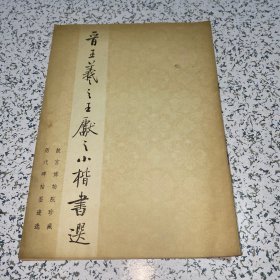 晋王羲之王献之小楷书选
故宫博物院珍藏
历代碑帖墨迹选